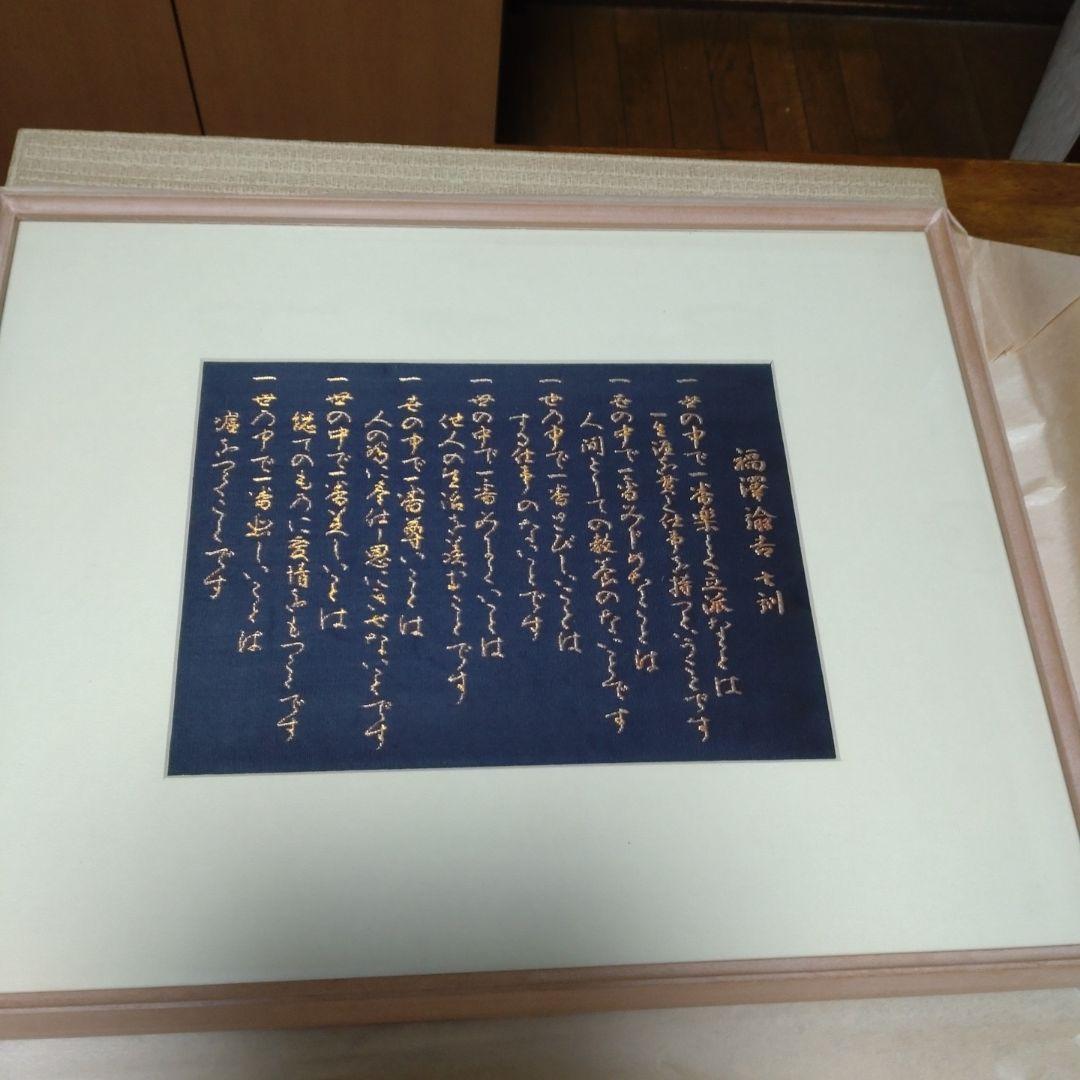 福澤諭吉 七訓
一世の中で一番楽しく立派なことは
一生涯を貫く仕事を持つということです
一世の中で一番みじめなことは
人間としての教養のないことです
一世の中で一番さびしいことは
する仕事のないことです
一世の中で一番みにくいことは
他人の生活を羨むことです
一世の中で一番尊いことは
人の為に奉仕し恩にきせないことです
一世の中で一番美しいことは
総てのものに愛情をもつことです
一世の中で一番悲しいことは
嘘をつくことです